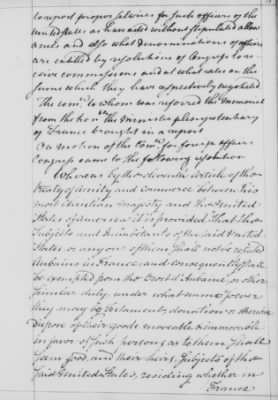 to report proper salaries for such officers of the
United States as have acted without stipulated allow
ances and also what denominations of officers
are entitled by resolutions of Congress to re
ceive commissions and at what rates on the
sums which they have respectively negotiated
The com.ee to whom was referred the memorial
from the hon.ble the minister plenipotentiary
of France brought in a report
On motion of the Com.ee for foreign affairs
Congress came to the following resolution
Whereas by the eleventh Article of the
treaty of amity and commerce between his
most christian majesty and the United
States of america it is provided That the
subjects and Inhabitants of the said United
States or any one of them shall not be reputed
Aubains in France and consequently shall
be exempted from the Droit d'Aubaine or other
similar duty, under what name soever
they may by testament, donation or otherwise
dispose of their goods moveable & immoveable
in favor of such persons as to them shall
seem good, and their heirs, subjects of the
said United States, residing whether in
France